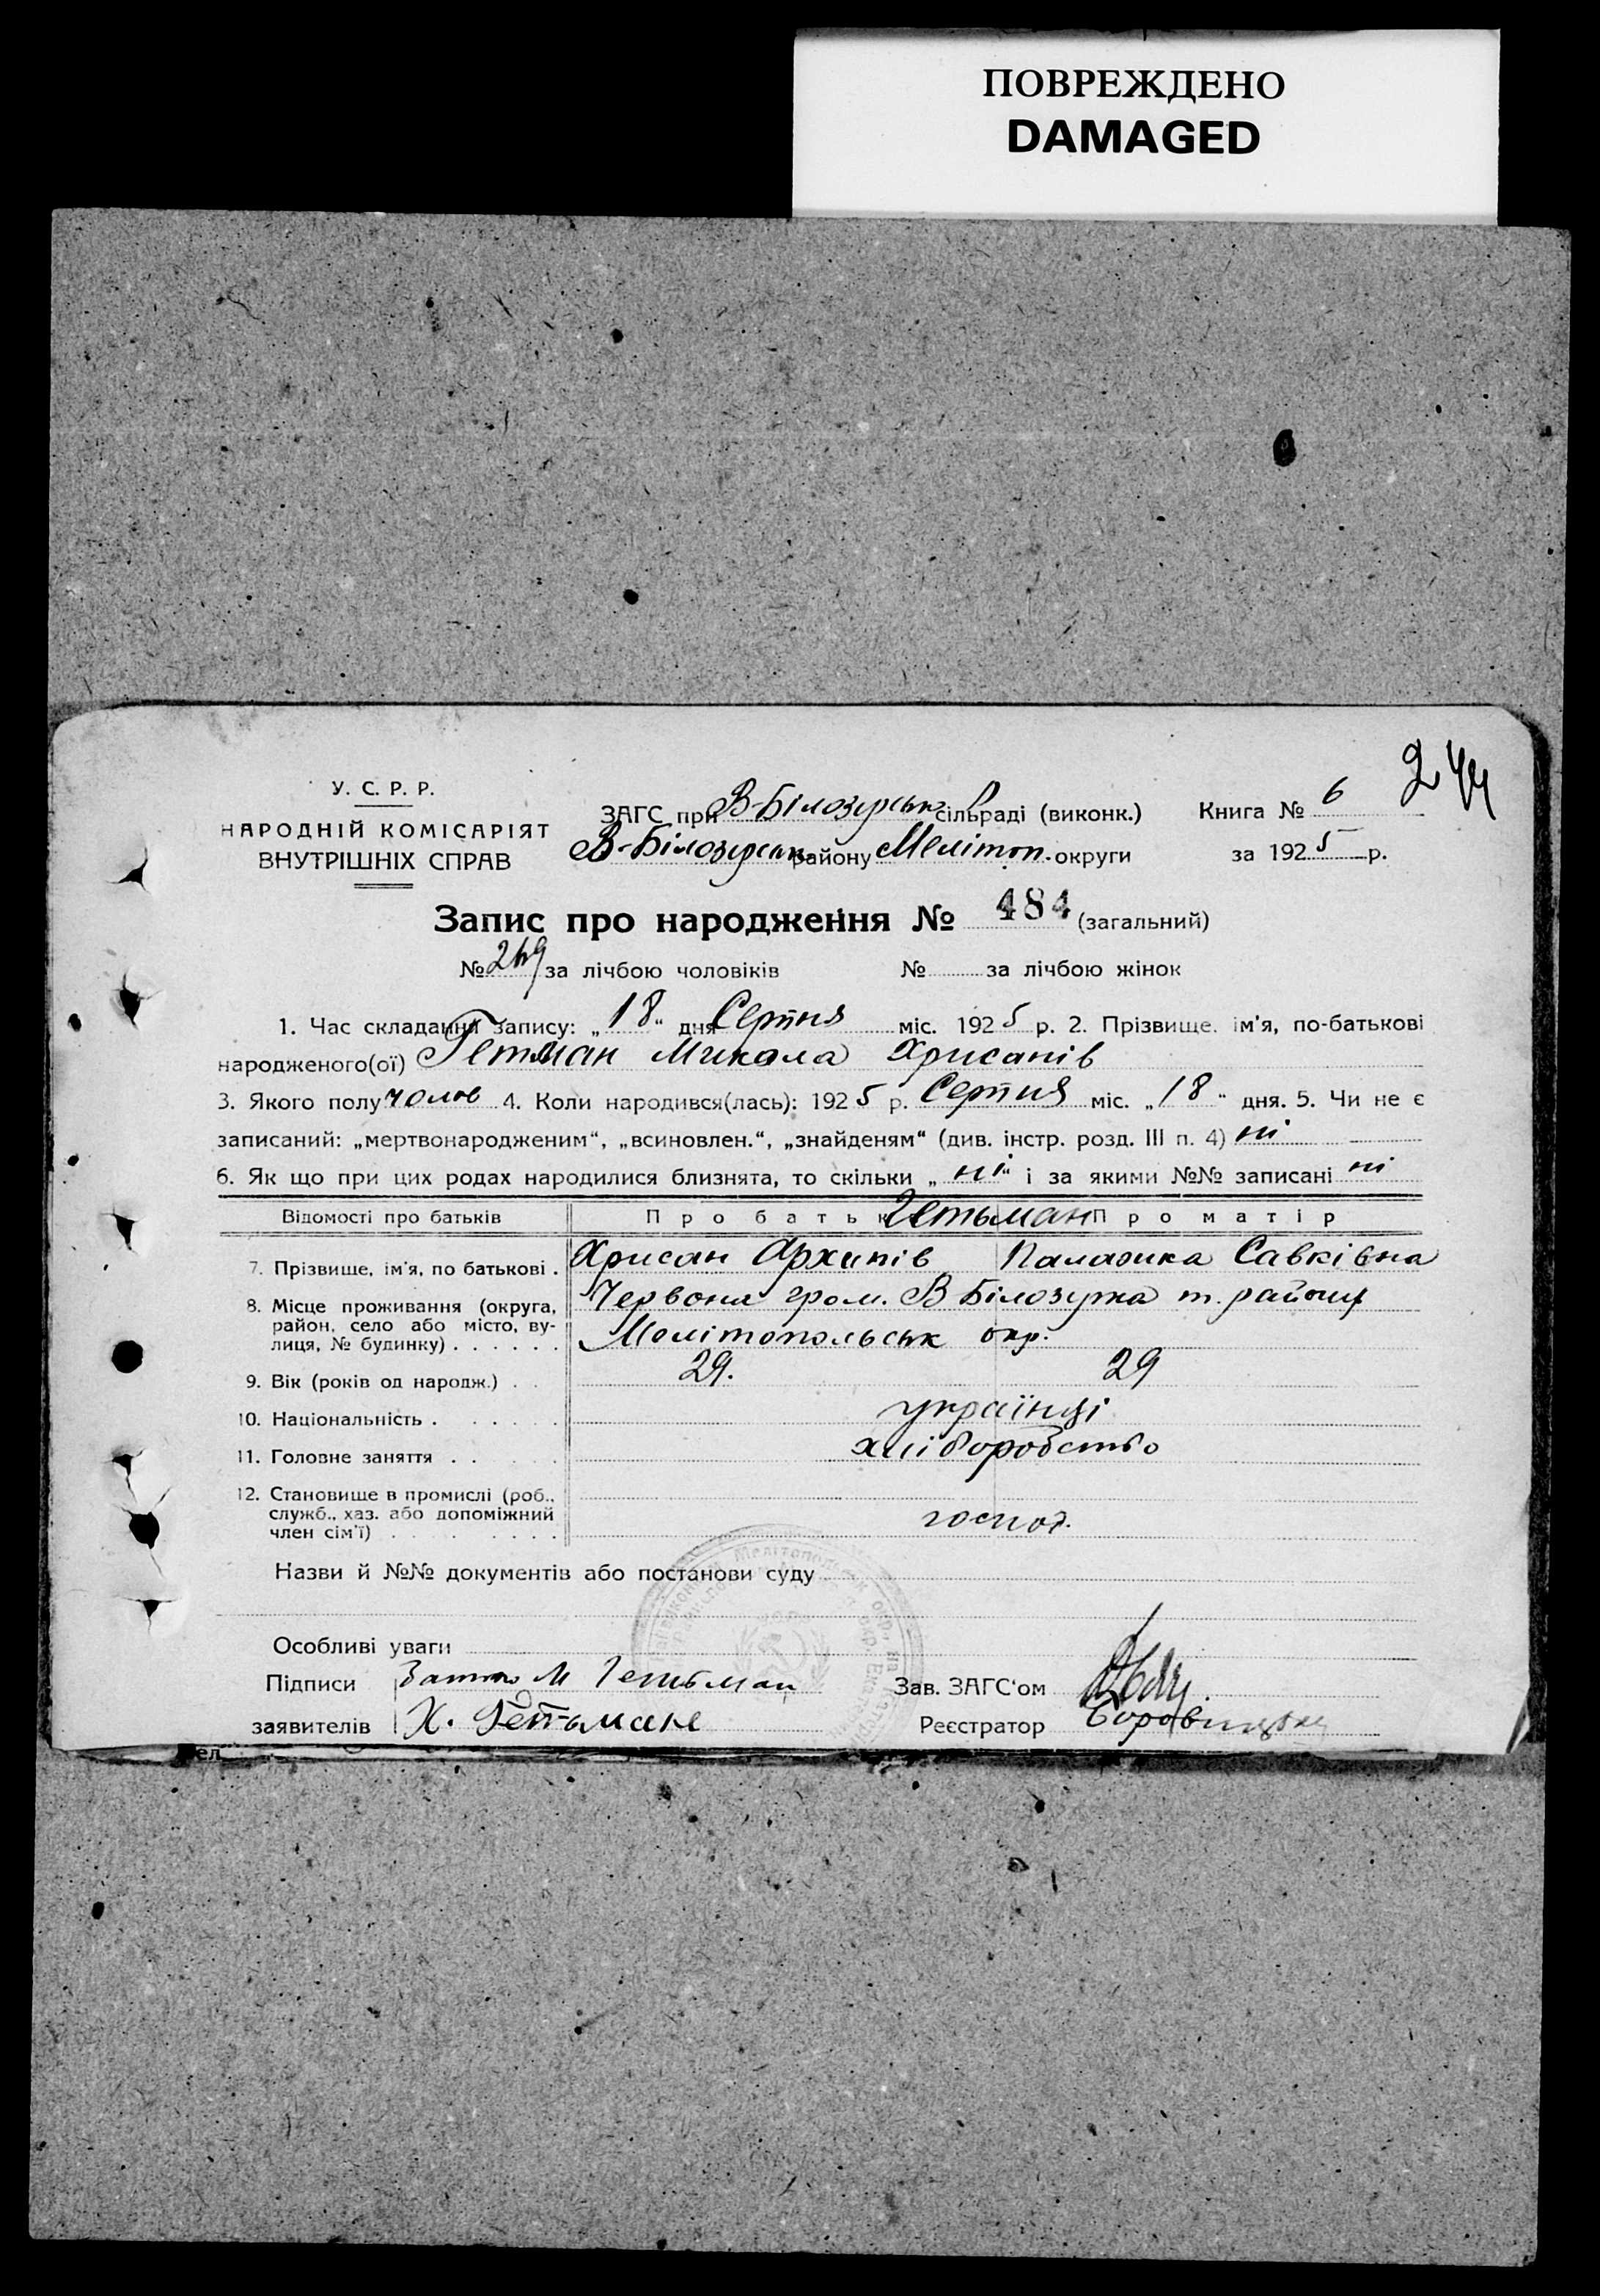 ПОВРЕЖДЕНО
DAMAGED
244
У. С. Р. Р.
НАРОДНІЙ КОМІСАРІЯТ
ВНУТРІШНІХ СПРАВ
ЗАГС при В-Білозерськ сільраді (виконк.)
В-Білозерськ району Мелітоп. округи
Книга № 6
за 1925 р.
Запис про народження № 484 (загальний)
№ 249 за лічбою чоловіків № за лічбою жінок
1. Час складання запису: „18“ дня Серпня міс. 1925 р. 2. Прізвище, ім'я, по-батькові
народженого(ої) Гетман Микола Хрисанів
3. Якого полу чолов 4. Коли народився(лась): 1925 р. Серпня міс. „18“ дня. 5. Чи не є
записаний: „мертвонародженим“, „всиновлен.“, „знайденям“ (див. інстр. розд. III п. 4) ні
6. Як що при цих родах народилися близнята, то скільки „ні“ і за якими №№ записані ні
Відомості про батьків Про батьк Гетьман Про матір
7. Прізвище, ім'я, по батькові . Хрисан Архипів Палажка Савківна
8. Місце проживання (округа, район, село або місто, вулиця, № будинку) . . . . . . Червона гром. В Білозерка т. району
Мелітопольськ окр.
9. Вік (років од народж.) . . 29. 29
10. Національність . . . . . . українці
11. Головне заняття . . . . . хліборобство
12. Становище в промислі (роб.,
служб., хаз. або допоміжний
член сім'ї) . . . . . . . господ.
Назви й №№ документів або постанови суду
Особливі уваги
Підписи М Гетьман
заявителів Х. Гетьман
Зав. ЗАГС'ом
Реєстратор